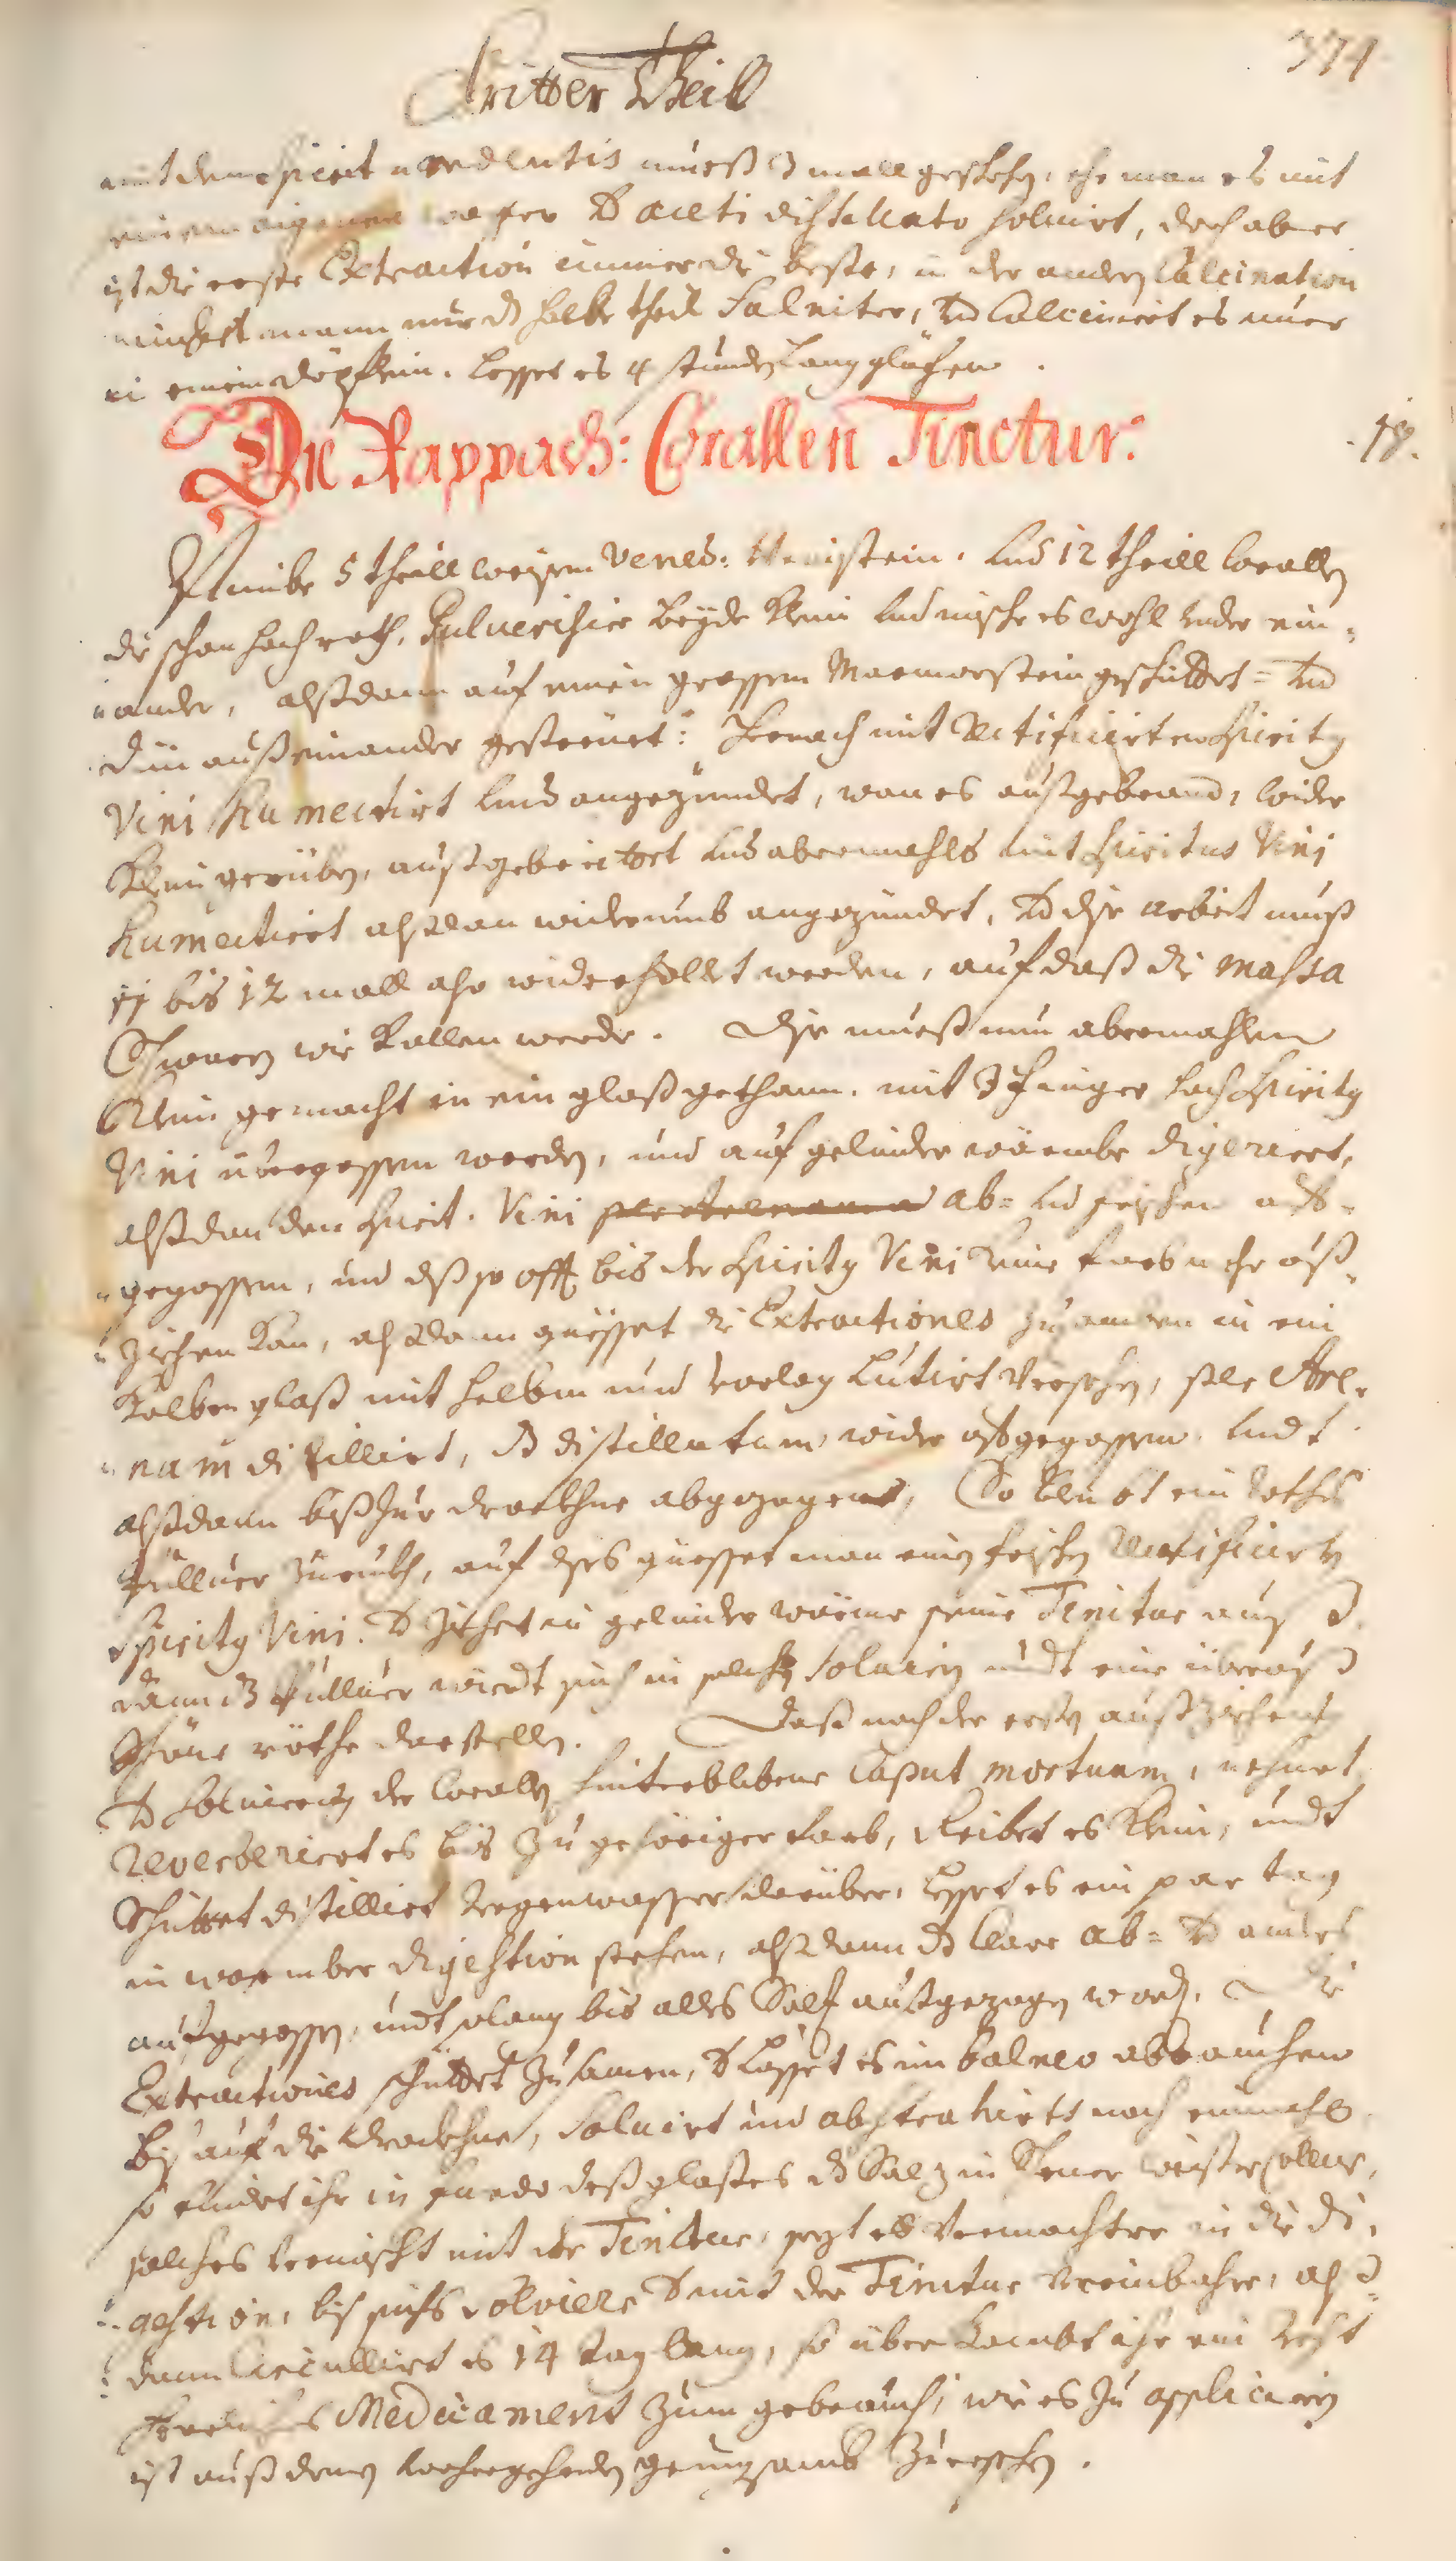 Dritter Theil
371
mit dem spirit u ardentis mueß 3 mall geschehen, ehe man es mit
aceti distillato solvirt, doch aber
ist die erste Extraction immer die beste, in der andern Calcination
nimbst mann nur dz halbe theil Salniter, vnd Calcinirt es nuer
in einem döpflein. Lesset es 4 stunden lang glüehen.
Die Rappach: Corallen Tinctur:
18.
Nimbe 5 theill weissen Vened: Weinstein. vnd 12 theill Corallen
die schon hochroth, Pulverisire beyde klein vnd mische es wohl vnder ein=
=ander, alßdann auf einen grossen Marmorstein geschüttet= vnd
din außeinander gestreuet: hernach mit Rectificirten Spiritus
Vini humectirt vnd angezündet, wan es außgebrand, wider
klein geriben, außgebreittet vnd abermahls mit Spiritus Vini
humectirt alßdan widerumb angezündet, vnd dise arbeit muß
11 bis 12 mall also widerhollet werden, auf daß die massa
Schwartz wie Kollen werde. Dise mueß nun abermahlen
klein gemacht in ein glaß gethann. mit 3 finger hoch Spiritus
Vini übergossen werden, und auf gelinder wärmbe digerirt,
alßdan den Spirit. Vini ab= vnd frischen auf=
=gegossen, und diß so offt bis der Spiritus Vini keine farb mehr auß=
=ziehen kan, alßdann güesset die Extractiones zusamen in ein
Kolben glaß mit helbm und vorlag Lutirt versehen, per Are=
=nam distillirt, dz distillatum wider aufgegossen. vndt
alßdann biß zur drockhne abgezogen, So bleibt ein rothes
Pullver zuruckh, auf dises güesset man einen frischen Rectificirten
Spiritus Vini. vnd ziehet in gelinder wärme seine Tinctur auß
dann dz Pullver wirdt sich in solchen solviren undt eine überauß
schöne röthe darstellen. Daß nach der ersten außziehent
vnd solvirung der Corallen hinterblibene Caput mortuum, nehmet
Reverberirt es bis zu gehöriger farb, Reibet es klein, undt
Schüttet distillirt regenwasser darüber, Lasset es ein par tag
in warmber digestion stehen, alßdann dz klare ab= vnd anders
aufgegossen, undt solang bis alles Salz außgezogen worden. Die
Extractiones schüttet zusamen, vnd Lasset es im balneo abrauchen
biß auf die drockhne, solvirt und abstrahirts noch einmahl
so findet ihr in fundo deß glaßes dz Salz in schener weisser coller,
solches vermischt mit der Tinctur, sezt es vermachter in die di=
=gestion, biß sichs solviere vnd mit der Tinctur vereinbahre, alß=
=dann Circullirt es 14 tag lang, so über kombt ihr ein recht
Medicament zum gebrauch, wie es zu appliciren
ist auß denen vorhergehenden genugsamb zuersehen.